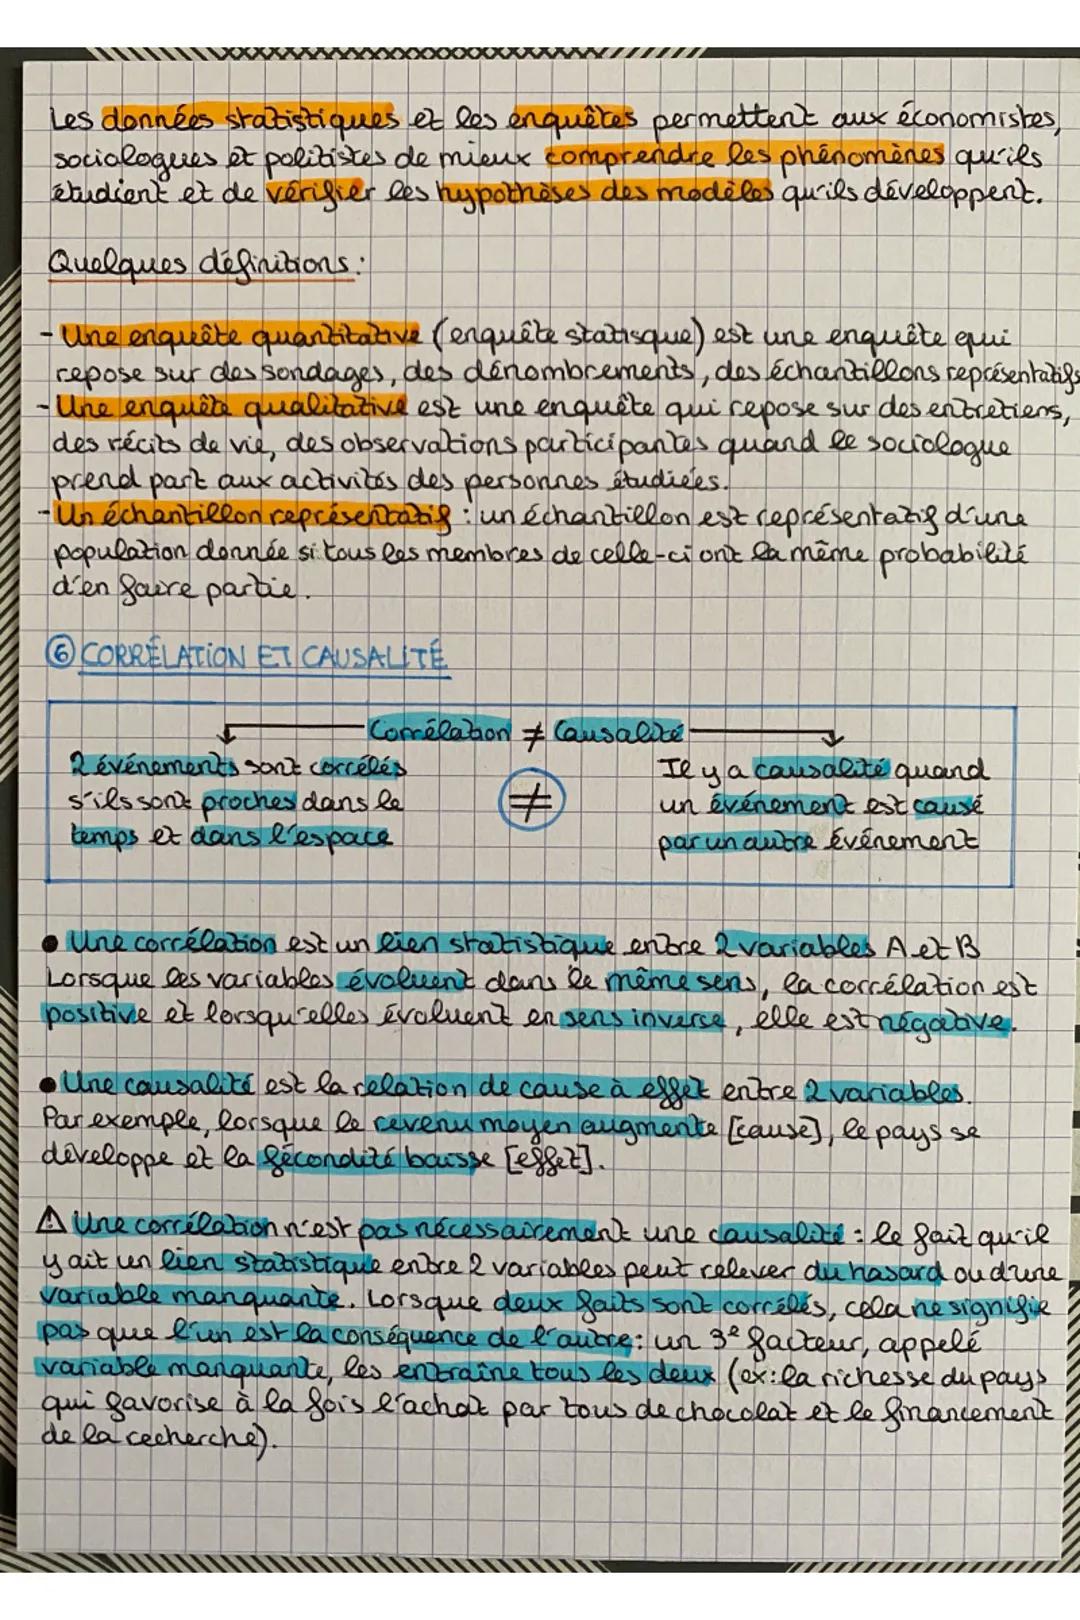 Les données statistiques et les enquêtes permettent aux économistes,
sociologues et politistes de mieux comprendre les phénomènes qu'ils
étudient et de vérifier les hypothèses des modèles qu'ils développent.
Quelques définitions :
- Une enquête quantitative (enquête statisque) est une enquête qui
repose sur des sondages, des dénombrements, des échantillons représentatifs
- Une enquête qualitative est une enquête qui repose sur des entretiens,
des récits de vie, des observations participantes quand le sociologue
prend part aux activités des personnes étudiées.
- Un échantillon représentatif : un échantillon est représentatif d'une
population donnée si tous les membres de celle-ci ont la même probabilité
d'en faire partie.
⑥ CORRÉLATION ET CAUSALITÉ
Corrélation ≠ Causalité
2 événements sont corrélés
s'ils sont proches dans le
temps et dans l'espace
≠
Il y a causalité quand
un événement est causé
par un autre événement
● Une corrélation est un lien statistique entre 2 variables A et B
Lorsque les variables évoluent dans le même sens, la corrélation est
positive et lorsqu'elles évoluent en sens inverse, elle est négative.
● Une causalité est la relation de cause à effet entre 2 variables.
Par exemple, lorsque le revenu moyen augmente [cause], le pays se
développe et la fécondité baisse [effet].
⚠ Une corrélation n'est pas nécessairement une causalité : le fait qu'il
y ait un lien statistique entre 2 variables peut relever du hasard ou d'une
variable manquante. Lorsque deux faits sont corrélés, cela ne signifie
pas que l'un est la conséquence de l'autre : un 3e facteur, appelé
variable manquante, les entraîne tous les deux (ex: la richesse du pays
qui favorise à la fois l'achat par tous de chocolat et le financement
de la recherche).